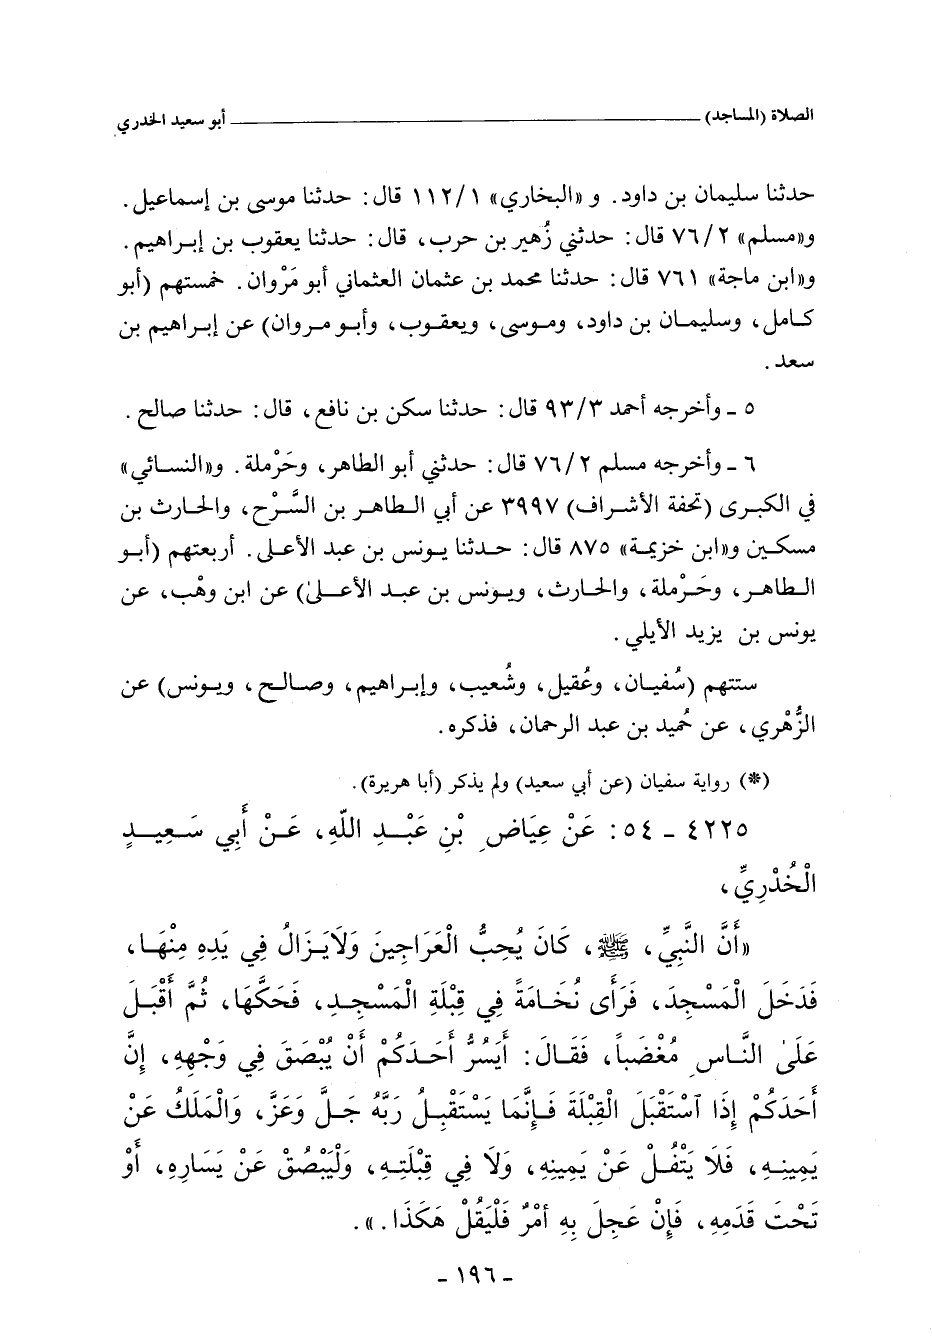 الصلاة (المساجد) ــــــــــــــــــــ أبو سعيد الخدري
حدثنا سليمان بن داود. و «البخاري» ١١٢/١ قال: حدثنا موسى بن إسماعيل.
و«مسلم» ٧٦/٢ قال: حدثني زُهير بن حرب، قال: حدثنا يعقوب بن إبراهيم.
و«ابن ماجة» ٧٦١ قال: حدثنا محمد بن عثمان العثماني أبو مَرْوان. خمستهم (أبو
كامل، وسليمان بن داود، وموسى، ويعقوب، وأبو مروان) عن إبراهيم بن
سعد.
٥ - وأخرجه أحمد ٩٣/٣ قال: حدثنا سكن بن نافع، قال: حدثنا صالح.
٦ - وأخرجه مسلم ٧٦/٢ قال: حدثني أبو الطاهر، وحَرْملة. و«النسائي»
في الكبرى (تحفة الأشراف) ٣٩٩٧ عن أبي الطاهر بن السَّرْح، والحارث بن
مسكين و«ابن خزيمة» ٨٧٥ قال: حدثنا يونس بن عبد الأعلى. أربعتهم (أبو
الطاهر، وحَرْملة، والحارث، ويونس بن عبد الأعلىٰ) عن ابن وهْب، عن
يونس بن يزيد الأيلي.
ستتهم (سُفيان، وعُقيل، وشُعيب، وإبراهيم، وصالح، ويونس) عن
الزُّهْري، عن حُميد بن عبد الرحمان، فذكره.
(*) رواية سفيان (عن أبي سعيد) ولم يذكر (أبا هريرة).
٤٢٢٥ - ٥٤: عَنْ عِيَاضِ بْنِ عَبْدِ اللّٰهِ، عَنْ أَبِي سَعِيدٍ
الْخُدْرِيِّ،
«أَنَّ النَّبِيَّ، ﷺ، كَانَ يُحِبُّ الْعَرَاجِينَ وَلَايَزَالُ فِي يَدِهِ مِنْهَا،
فَدَخَلَ الْمَسْجِدَ، فَرَأَى نُخَامَةً فِي قِبْلَةِ الْمَسْجِدِ، فَحَكَّهَا، ثُمَّ أَقْبَلَ
عَلَىٰ النَّاسِ مُغْضَباً، فَقَالَ: أَيَسُرُّ أَحَدَكُمْ أَنْ يُبْصَقَ فِي وَجْهِهِ، إِنَّ
أَحَدَكُمْ إِذَا ٱسْتَقْبَلَ الْقِبْلَةَ فَإِنَّمَا يَسْتَقْبِلُ رَبَّهُ جَلَّ وَعَزَّ، وَالْمَلَكُ عَنْ
يَمِينِهِ، فَلَا يَتْفُلْ عَنْ يَمِينِهِ، وَلَا فِي قِبْلَتِهِ، وَلْيَبْصُقْ عَنْ يَسَارِهِ، أَوْ
تَحْتَ قَدَمِهِ، فَإِنْ عَجِلَ بِهِ أَمْرٌ فَلْيَقُلْ هَكَذَا.».
- ١٩٦ -